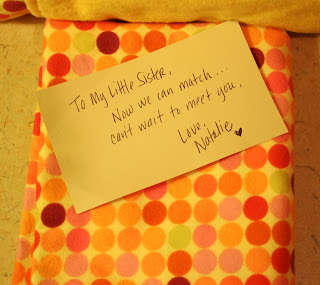 To My Little Sister,
Now we can match...
can't wait to meet you.
Love,
Natalie ♥